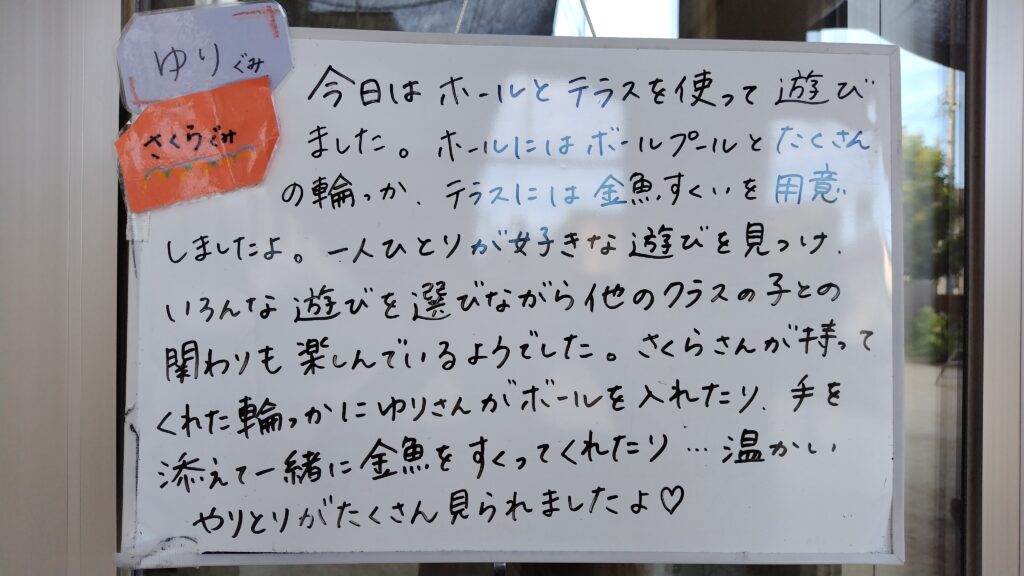 ゆりぐみ
さくらぐみ
今日は ホールと テラスを使って 遊び
ました。ホールにはボールプールとたくさん
の輪っか、テラスには金魚すくいを用意
しましたよ。一人ひとりが好きな遊びを見つけ、
いろんな遊びを選びながら他のクラスの子との
関わりも楽しんでいるようでした。さくらさんが持って
くれた輪っかにゆりさんがボールを入れたり、手を
添えて一緒に金魚をすくってくれたり…温かい
やりとりがたくさん見られましたよ♡